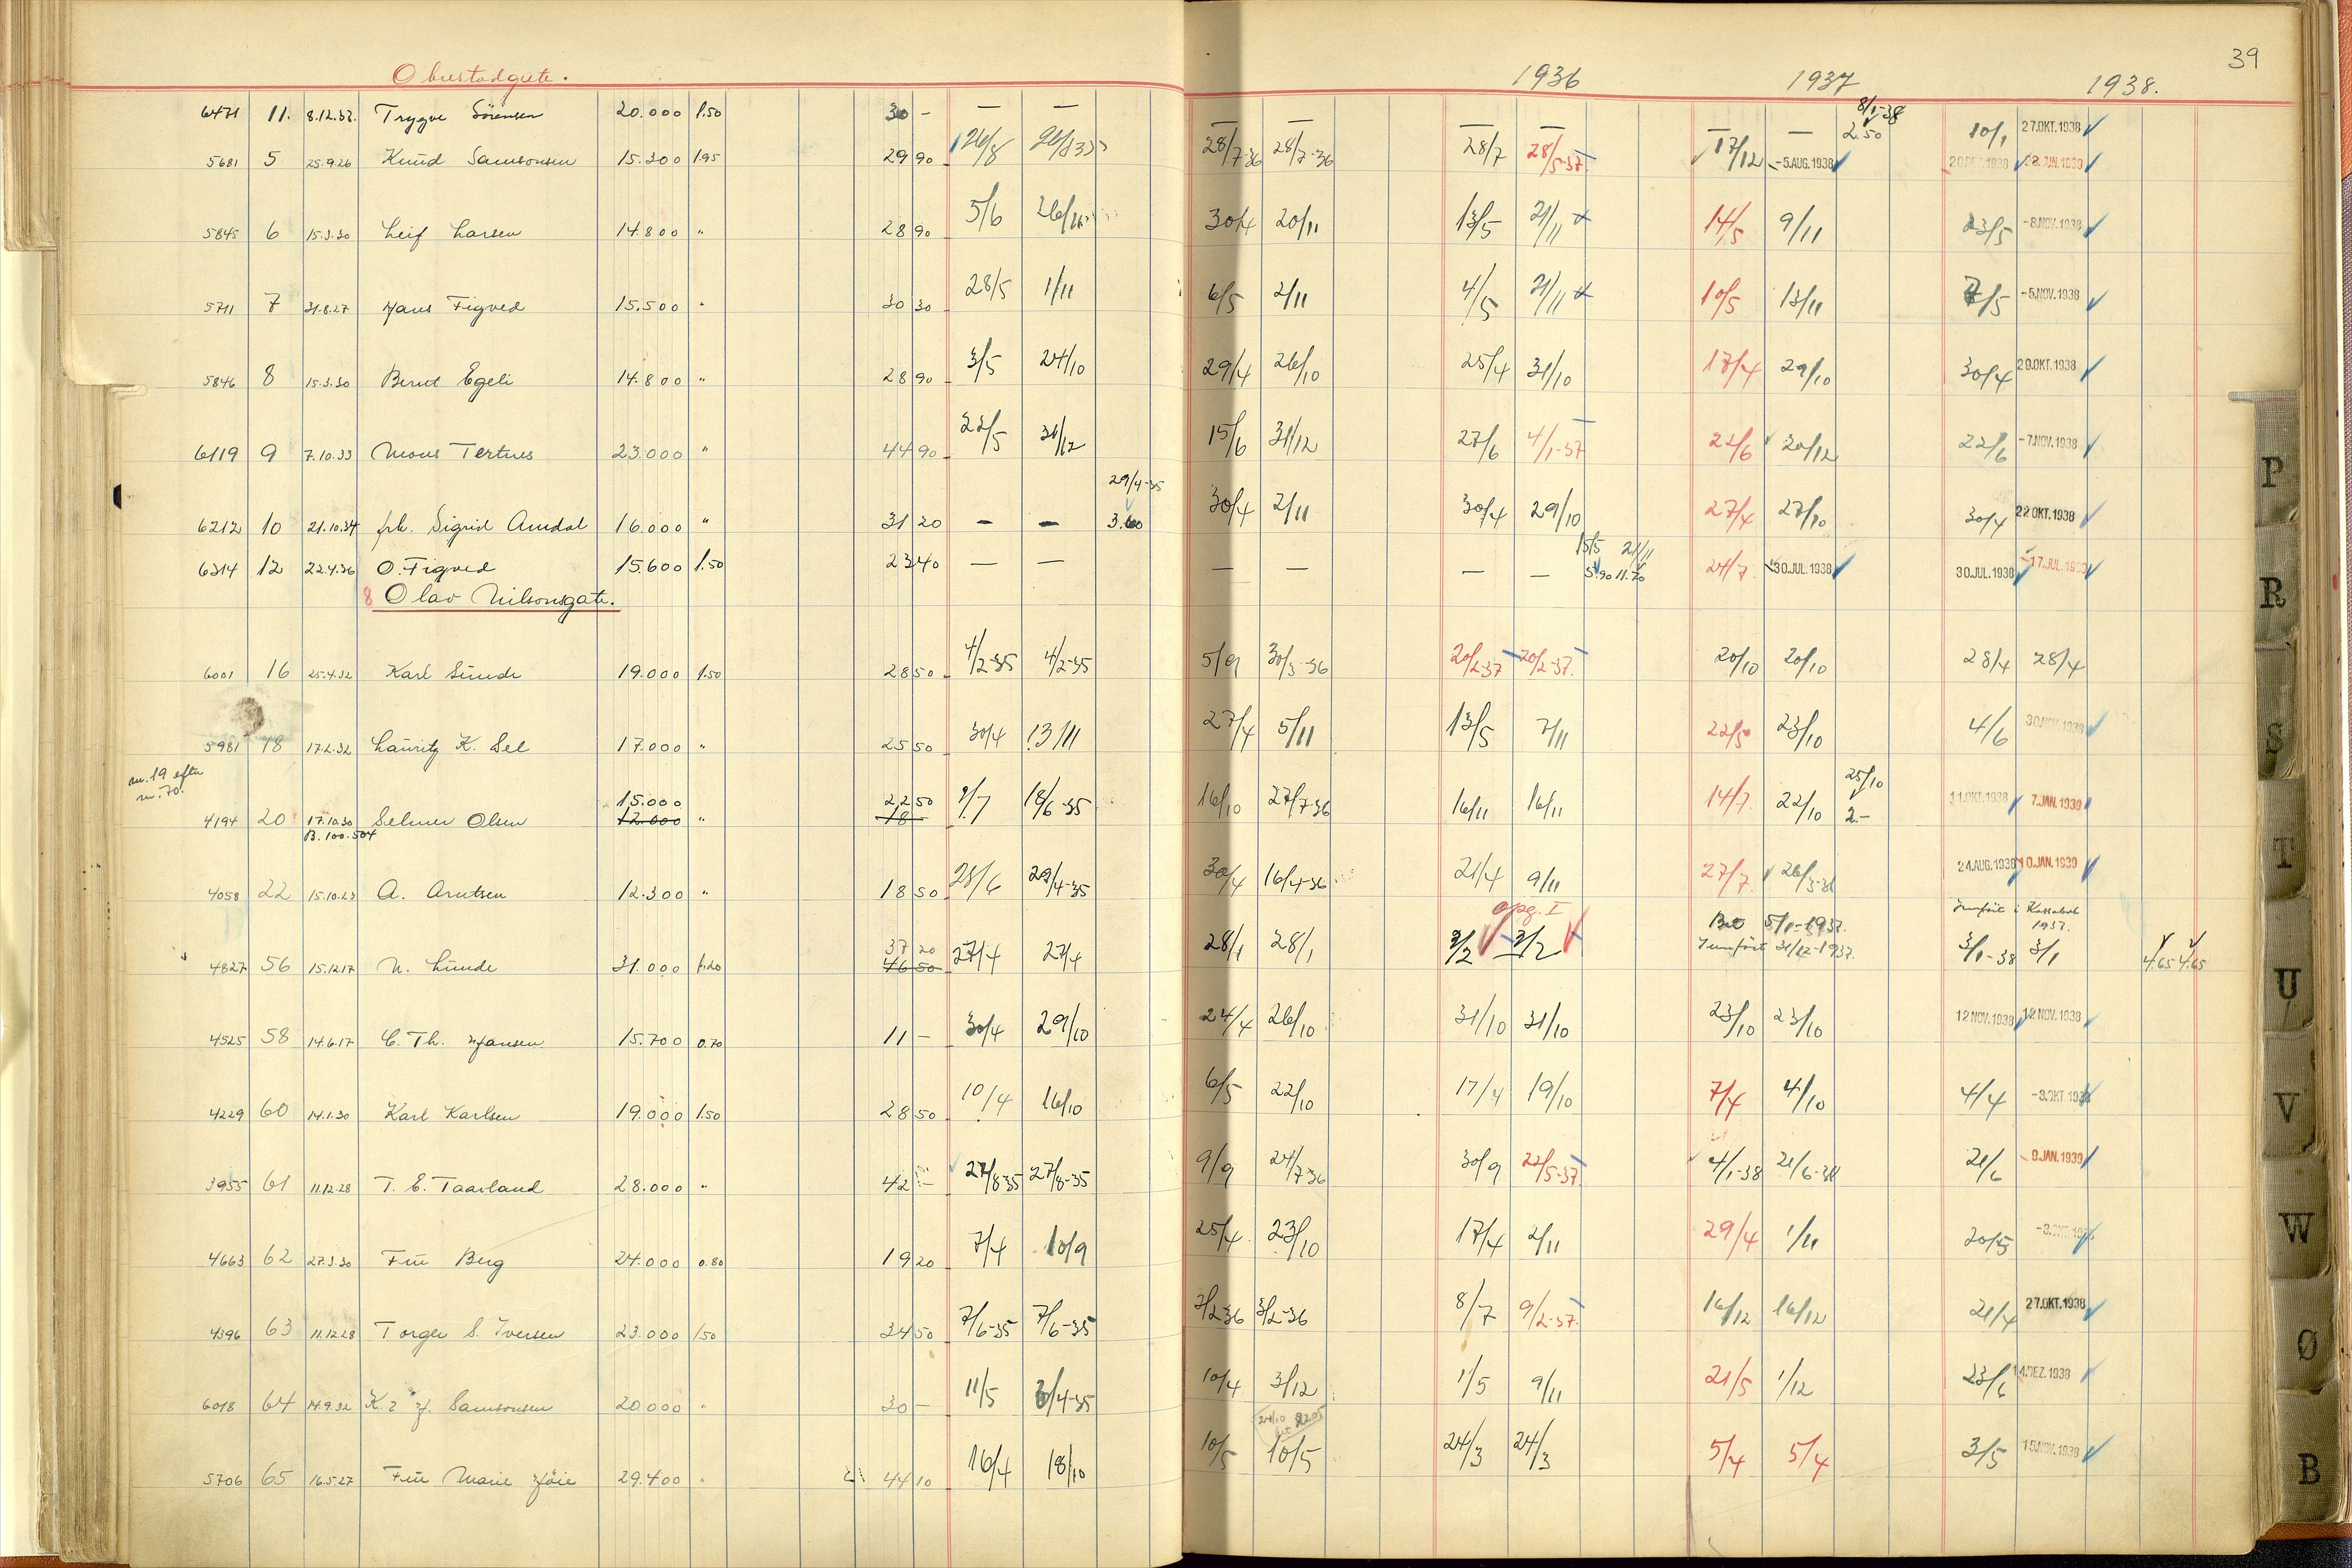 39
Obrestadgate.
1936 1937 1938.
8/1-38
6471 11. 8.12.37. Trygve Sörensen 20.000 1.50 30 - — — — — — — — — 2.50 10/1 27.OKT.1938
5681 5 25.9.26 Knud Samsonsen 15.300 1.95 29 90 26/8 28/7-36 28/7-36 28/7 28/5-37. 17/12 -5.AUG.1938 20.DEZ.1938
5845 6 15.3.30 Leif Larsen 14.800 " 28 90 5/6 26/11 30/4 20/11 13/5 21/11 14/5 9/11 23/5 -8.NOV.1938
5711 7 31.8.27 Hans Figved 15.500 " 30 30 28/5 1/11 6/5 2/11 4/5 21/11 10/5 13/11 7/5 -5.NOV.1938
5846 8 15.3.30 Berut Egeli 14.800 " 28 90 3/5 24/10 29/4 26/10 25/4 31/10 17/4 29/10 30/4 29.OKT.1938
6119 9 7.10.33 Mons Tertnes 23.000 " 44 90 22/5 31/12 15/6 31/12 27/6 4/1-37 22/6 20/12 22/6 -7.NOV.1938
29/4-35
6212 10 21.10.34 frk. Sigrid Amdal 16.000 " 31 20 — — 3.60 30/4 2/11 30/4 29/10 27/4 27/10 30/4 22.OKT.1938
15/5 21/11
6314 12 22.4.36 O. Figved 15.600 1.50 23 40 — — — — — — 5.90 11.70 24/7 30.JUL.1938 30.JUL.1938 17.JUL.1939
8 Olav Nilsonsgate.
6001 16 25.4.32 Karl Sunde 19.000 1.50 28 50 4/2-35 4/2-35 5/9 30/3-36 20/2-37 20/2-37. 20/10 20/10 28/4 28/4
5981 18 17.2.32 Lauritz K. Sel 17.000 " 25 50 30/4 13/11 27/4 5/11 13/5 7/11 22/5 23/10 4/6 30.NOV.1938
nr. 19 efter
nr. 70.
25/10
15.000 22 50
4194 20 17.10.30 Selmer Olsen 12.000 " 18 - 9/7 18/6-35 16/10 27/7-36 16/11 16/11 14/7. 22/10 2.- 11.OKT.1938 7.JAN.1939
B. 100.504
4058 22 15.10.23 A. Arntsen 12.300 " 18 50 28/6 29/4-35 30/4 16/4-36 21/4 9/11 27/7. 26/3-38 24.AUG.1938 10.JAN.1939
opg. I Bet 5/1-1937. Jumfört i Kassabok
1937.
37 20 Jumfört 31/12-1937.
4827 56 15.12.17 N. Lunde 31.000 1.20 46 50 27/4 27/4 28/1 28/1 3/2 3/2 3/1-38 3/1 4.65 4.65
4525 58 14.6.17 C. Th. Hansen 15.700 0.70 11 - 30/4 29/10 24/4 26/10 31/10 31/10 23/10 23/10 12.NOV.1938 12.NOV.1938
4229 60 14.1.30 Karl Karlsen 19.000 1.50 28 50 10/4 16/10 6/5 22/10 17/4 19/10 7/4 4/10 4/4 -3.OKT.1938
3955 61 11.12.28 T. E. Taarland 28.000 " 42 - 27/8-35 27/8-35 9/9 24/7-36 30/9 22/5-37. 4/1-38 21/6-38 21/6 9.JAN.1939
4663 62 27.3.30 Frü Berg 24.000 0.80 19 20 7/4 10/9 25/4 23/10 17/4 2/11 29/4 1/11 20/5
4396 63 11.12.28 Torger S. Iversen 23.000 1.50 34 50 7/6-35 7/6-35 3/2-36 3/2-36 8/7 9/2-37. 16/12 16/12 21/4 27.OKT.1938
6018 64 14.9.32 K. & J. Samsonsen 20.000 " 30 - 11/5 3/4-35 10/4 3/12 1/5 9/11 21/5 1/12 23/6 14.DEZ.1938
5706 65 16.5.27 Frü Marie Höie 29.400 " 44 10 16/4 18/10 10/5 10/5 24/3 24/3 5/4 5/4 3/5 15.NOV.1938
P
R
S
T
U
V
W
Ø
B